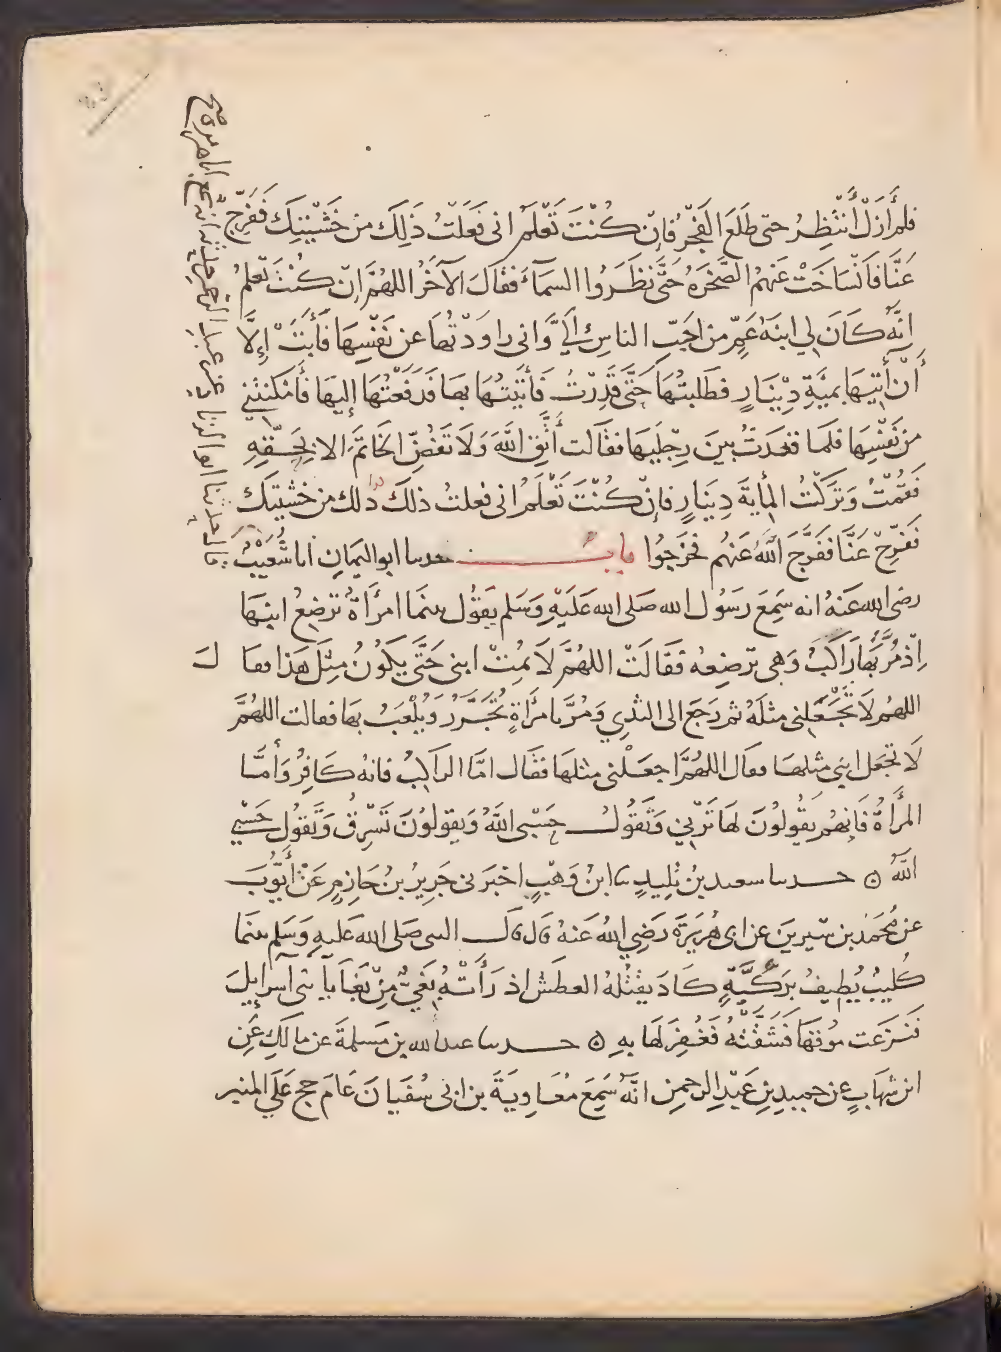 فلم أَزَلْ أَنْتَظِرُ حتى طَلَعَ الفَجْرُ فَإِنْ كُنْتَ تَعْلَمُ انى فَعَلْتُ ذَلِكَ من خَشْيَتِكَ فَفَرِّجْ
عَنَّا فَانْسَاخَتْ عَنهمُ الصَّخرَةُ حَتَّى نَظَرُوا السمآءَ فقالَ الآخَرُ اللهُمَّ اِنْ كُنْتَ تعلمُ
انَّهُ كَانَ لِي ابنَةُ عَمٍّ من احَبِّ الناسِ اِلَيَّ وَانى راوَدْتُهَا عن نَفْسِهَا فَأَبَتْ اِلَّا
أَنْ أتِيَهَا بِميَّةِ دِيْنَارٍ فطَلَبْتُهَا حَتَّى قَدَرْتُ فَأَتَيْتُهَا بهَا فَدَفَعْتُهَا اِليهَا فَأَمْكَنَتْنِي
من نَفْسِهَا فلما قعَدتُ بينَ رِجْلَيهَا فقَالَت اتَّقِ اللهَ وَلَا تَفُضَّ الخاتَمَ الا بِحَقِّهِ
فَقُمْتُ وَتَرَكْتُ المأيةَ دِينَارٍ فإنْ كُنْتَ تَعْلَمُ انى فعلتُ ذلكَ ذلك من خشْيَتِكَ
فَفَرِّجْ عَنَّا فَفَرَّجَ اللهُ عَنهُم فَخَرَجُوا بابٌ حدسا ابو اليمَانِ انا شُعَيْبٌ
رضى الله عَنهُ انه سَمِعَ رَسُولَ الله صَلى الله عَلَيْهِ وَسَلم يَقُول بينما امرأَةٌ تُرضِعُ ابنَهَا
اِذْ مَرَّ بهَا رَاكِبٌ وَهى تُرضِعه فَقَالَتْ اللهُمَّ لَا تُمِتْ ابنى حَتَّى يَكُونَ مِثْلَ هَذا فقَالَ
اللهُم لَا تَجْعَلْنِى مثلَهُ ثم رَجَعَ الى الثَّدِي وَمُرَّ بامرَأةٍ تُجَرَّرُ وَيُلْعَبُ بهَا فقالت اللهُمَّ
لَا تجعَل ابنِى مثلهَا فقال اللهُمَّ اجعَلْنى مثلهَا فقَال امَّا الراكِبُ فانهُ كَافِرٌ وَأمَّا
المَرأَةُ فَانِهُم يَقُولُونَ لهَا تَزْنِي وَتَقُولُ حَسْبِي اللهُ وَيقولُونَ تَسْرِقُ وَتَقُول حَسْبِي
اللهُ ۞ حدسا سعيد بن تَلِيدٍ نا ابن وَهْبٍ اخبَرنى جَرِيرُ بنُ حَازِمٍ عَنْ أَيُّوبَ
عن مُحَمَّد بن سيرِينَ عن ابى هُرَيرَةَ رَضِيَ اللهُ عَنهُ قَال قَال النبى صَلى الله عَليهِ وَسَلم بينَمَا
كَلْبٌ يُطِيفُ بِرَكِيَّةٍ كَادَ يَقْتُلُهُ العطَشُ اذ رَأَتْهُ بَغِيٌّ مِنْ بَغَايَا بَنى اسرَايِلَ
فَنَزَعَت مُوقَهَا فَسَقَتْهُ فَغُفِرَ لَهَا بهِ ۞ حدسا عبد الله بن مَسلمَةَ عن مالِكٍ عَنِ
ابن شهَابٍ عن حميدِ بنِ عَبْدِ الرحمنِ انَّهُ سَمِعَ مُعَاوِيَةَ بن ابى سُفيَانَ عَامَ حجَّ عَلَى المنبر
قال حدثنا ابو الزناد عن عبد الرحمن حدثه انه سمع ابا هريرة صح